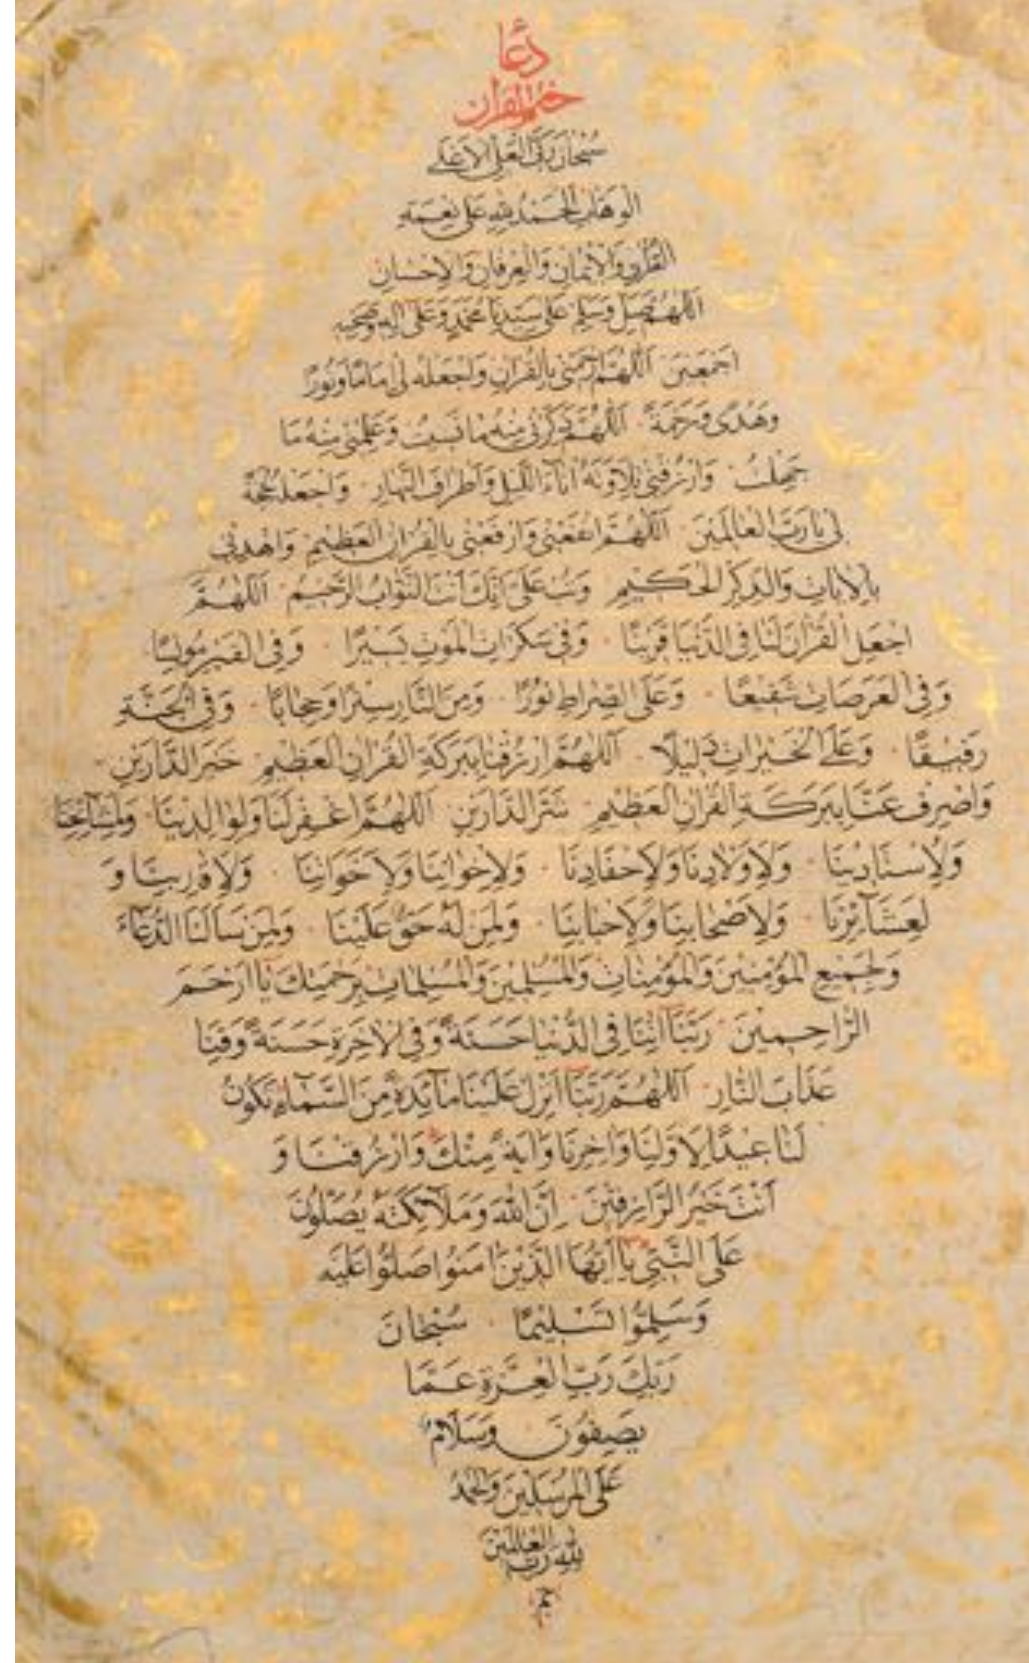 دعا
ختم القرآن
سُبْحَانَ رَبِّيَ الْعَلِيِّ الْأَعْلَى
الْوَهَّابِ الْحَمْدُ لِلّٰهِ عَلَى نِعْمَةِ
الْقُرْآنِ وَالْاِيْمَانِ وَالْعِرْفَانِ وَالْاِحْسَانِ
اَللّٰهُمَّ صَلِّ وَسَلِّمْ عَلَى سَيِّدِنَا مُحَمَّدٍ وَعَلَى اٰلِهِ وَصَحْبِهِ
اَجْمَعِينَ اَللّٰهُمَّ ارْحَمْنِي بِالْقُرْاٰنِ وَاجْعَلْهُ لِي اِمَامًا وَنُورًا
وَهُدًى وَرَحْمَةً اَللّٰهُمَّ ذَكِّرْنِي مِنْهُ مَا نَسِيتُ وَعَلِّمْنِي مِنْهُ مَا
جَهِلْتُ وَارْزُقْنِي تِلَاوَتَهُ اٰنَاءَ اللَّيْلِ وَاَطْرَافَ النَّهَارِ وَاجْعَلْهُ حُجَّةً
لِي يَا رَبَّ الْعَالَمِينَ اَللّٰهُمَّ انْفَعْنِي وَارْفَعْنِي بِالْقُرْاٰنِ الْعَظِيمِ وَاهْدِنِي
بِالْاٰيَاتِ وَالذِّكْرِ الْحَكِيمِ وَتُبْ عَلَيَّ اِنَّكَ اَنْتَ التَّوَّابُ الرَّحِيمُ اَللّٰهُمَّ
اجْعَلِ الْقُرْاٰنَ لَنَا فِي الدُّنْيَا قَرِينًا وَفِي سَكَرَاتِ الْمَوْتِ يَسِيرًا وَفِي الْقَبْرِ مُونِسًا
وَفِي الْعَرَصَاتِ شَفِيعًا وَعَلَى الصِّرَاطِ نُورًا وَمِنَ النَّارِ سِتْرًا وَحِجَابًا وَفِي الْجَنَّةِ
رَفِيقًا وَعَلَى الْخَيْرَاتِ دَلِيلًا اَللّٰهُمَّ ارْزُقْنَا بِبَرَكَةِ الْقُرْاٰنِ الْعَظِيمِ خَيْرَ الدَّارَيْنِ
وَاصْرِفْ عَنَّا بِبَرَكَةِ الْقُرْاٰنِ الْعَظِيمِ شَرَّ الدَّارَيْنِ اَللّٰهُمَّ اغْفِرْ لَنَا وَلِوَالِدِينَا وَلِمَشَائِخِنَا
وَلِاُسْتَادِينَا وَلِاَوْلَادِنَا وَلِاَحْفَادِنَا وَلِاِخْوَانِنَا وَلِاَخَوَاتِنَا وَلِاَقَارِبِنَا وَ
لِعَشَائِرِنَا وَلِاَصْحَابِنَا وَلِاَحْبَابِنَا وَلِمَنْ لَهُ حَقٌّ عَلَيْنَا وَلِمَنْ سَاَلَنَا الدُّعَاءَ
وَلِجَمِيعِ الْمُؤْمِنِينَ وَالْمُؤْمِنَاتِ وَالْمُسْلِمِينَ وَالْمُسْلِمَاتِ بِرَحْمَتِكَ يَا اَرْحَمَ
الرَّاحِمِينَ رَبَّنَا اٰتِنَا فِي الدُّنْيَا حَسَنَةً وَفِي الْاٰخِرَةِ حَسَنَةً وَقِنَا
عَذَابَ النَّارِ اَللّٰهُمَّ رَبَّنَا اَنْزِلْ عَلَيْنَا مَائِدَةً مِنَ السَّمَاءِ تَكُونُ
لَنَا عِيدًا لِاَوَّلِنَا وَاٰخِرِنَا وَاٰيَةً مِنْكَ وَارْزُقْنَا وَ
اَنْتَ خَيْرُ الرَّازِقِينَ اِنَّ اللهَ وَمَلَائِكَتَهُ يُصَلُّونَ
عَلَى النَّبِيِّ يَا اَيُّهَا الَّذِينَ اٰمَنُوا صَلُّوا عَلَيْهِ
وَسَلِّمُوا تَسْلِيمًا سُبْحَانَ
رَبِّكَ رَبِّ الْعِزَّةِ عَمَّا
يَصِفُونَ وَسَلَامٌ
عَلَى الْمُرْسَلِينَ وَالْحَمْدُ
لِلّٰهِ رَبِّ الْعَالَمِينَ
م